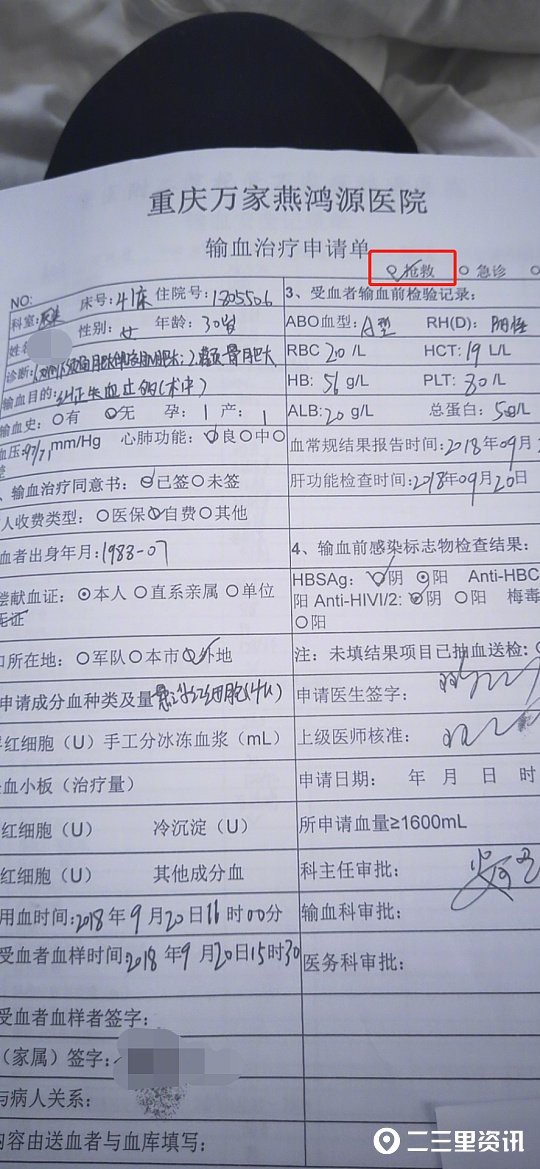 重庆万家燕鸿源医院
输血治疗申请单
抢救 ○急诊 ○
NO:
科室: 床号:41床 住院号:1205506 3、受血者输血前检验记录:
姓名 性别:女 年龄:30岁 ABO血型:A型 RH(D):阳性
诊断: RBC 20 /L HCT:19 L/L
输血目的:纠正失血 (术中) HB:56 g/L PLT:80/L
输血史:○有 无 孕:1 产:1 ALB:20 g/L 总蛋白:50g/L
血压:97/71mm/Hg 心肺功能:良○中○ 血常规结果报告时间:2018年09月
、输血治疗同意书:已签○未签 肝功能检查时间:2018年09月20日
人收费类型:○医保自费○其他
血者出身年月:1983-07 4、输血前感染标志物检查结果:
偿献血证:⊙本人 ○直系亲属 ○单位 HBSAg:阴 ⊙阳 Anti-HBC
无证 阳 Anti-HIVI/2:阴 ○阳 梅毒
○阳
口所在地:○军队○本市外地 注:未填结果项目已抽血送检:
申请成分血种类及量 红细胞(4U) 申请医生签字:
红细胞(U)手工分冰冻血浆(mL) 上级医师核准:
血小板(治疗量) 申请日期: 年 月 日 时
红细胞(U) 冷沉淀(U) 所申请血量≥1600mL
红细胞(U) 其他成分血 科主任审批:
用血时间:2018年9月20日11时00分 输血科审批:
受血者血样时间:2018年9月20日15时30 医务科审批:
受血者血样者签字:
(家属)签字:
与病人关系:
内容由送血者与血库填写:
二三里资讯